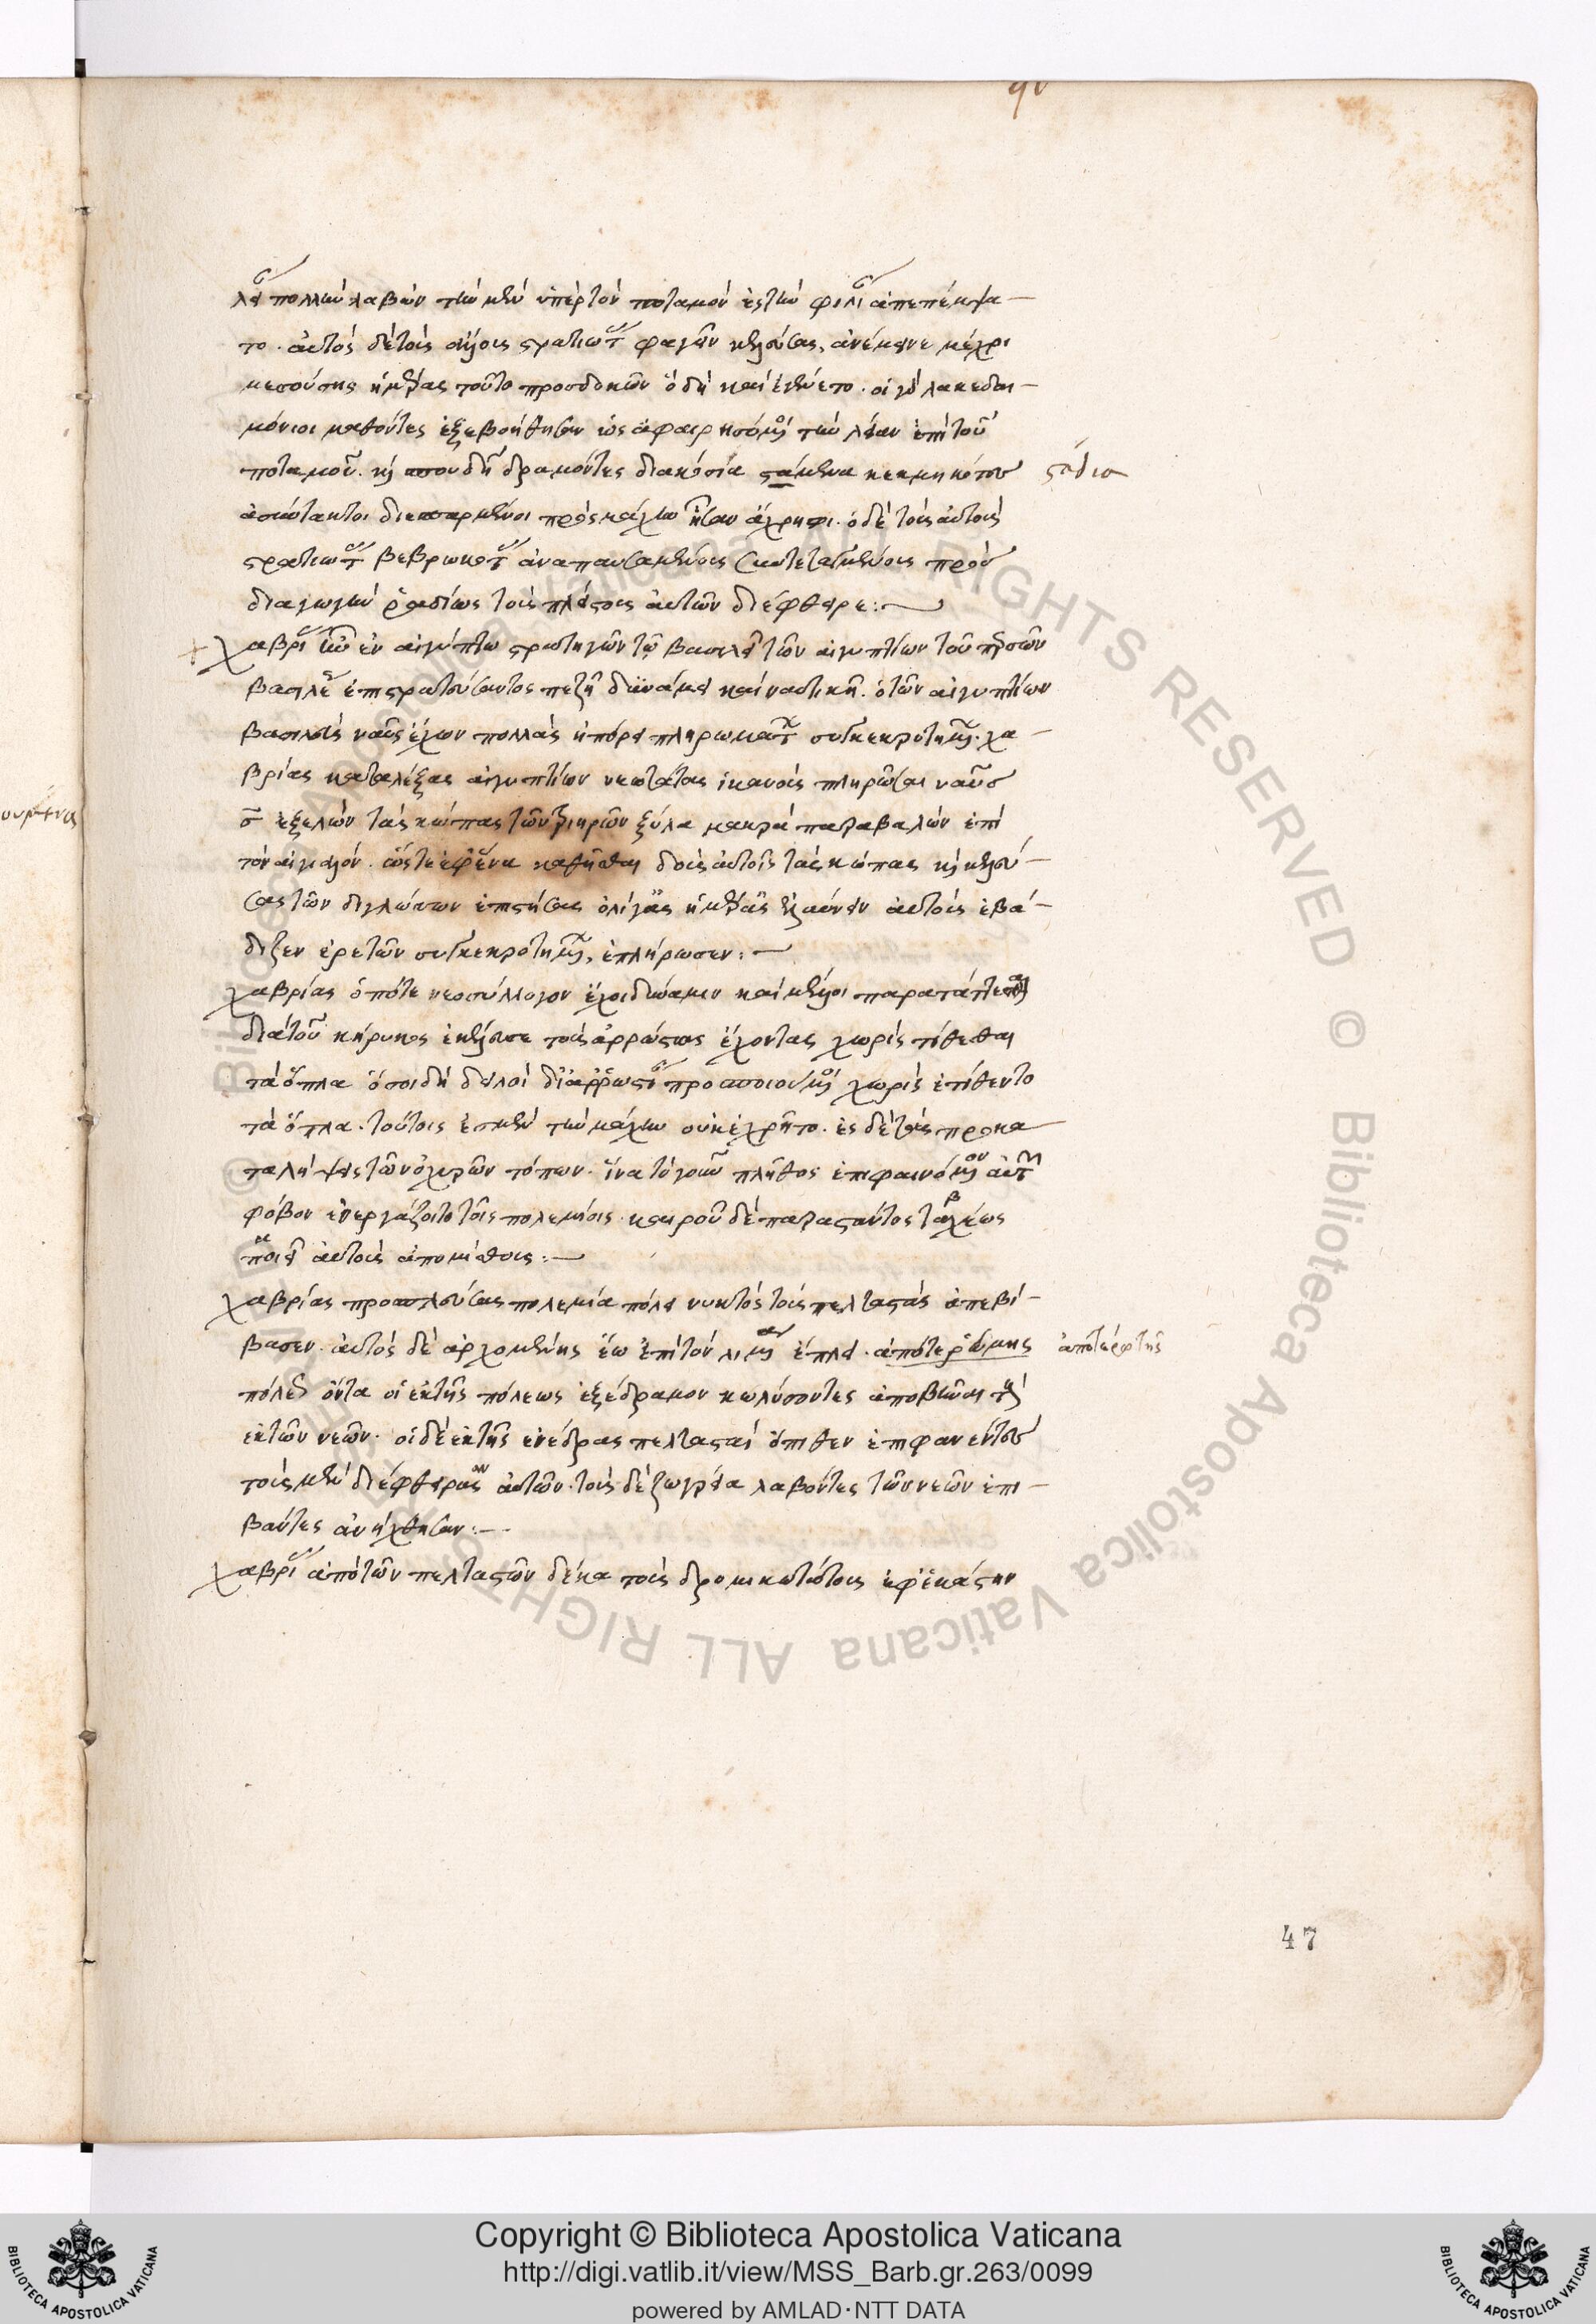 λείαν πολλὴν λαβὼν τὴν μὲν ὑπὲρ τὸν ποταμὸν ἐς τὴν φιλίαν ἀπεπέμψα-
το. αὐτὸς δὲ τοῖς ἄλλοις στρατιώταις φαγεῖν κελεύσας, ἀνέμεινε μέχρι
μεσούσης ἡμέρας τοῦτο προσδοκῶν ὃ δὴ καὶ ἐγένετο. οἱ γὰρ λακεδαι-
μόνιοι μαθόντες ἐξεβοήθησαν ὡς ἀφαιρησόμενοι τὴν λείαν ἐπὶ τοῦ
ποταμοῦ. καὶ σπουδῇ δραμόντες διακόσια στάμενα κεκμηκότες στάδια
ἀσύντακτοι διεσπαρμένοι πρὸς μάχην ἦσαν ἄχρηστοι. ὁ δὲ τοὺς αὐτοὺς
στρατιώτας βεβρωκότας ἀναπαυσαμένους συντεταγμένους πρὸς
διαγωγὴν ῥαδίως τοὺς πλείστους αὐτῶν διέφθειρε:
χαβρίας ἦν ἐν αἰγύπτω στρατηγῶν τῷ βασιλεῖ τῶν αἰγυπτίων τοῦ περσῶν
βασιλέως ἐπιστρατεύσαντος πεζῇ δυνάμει καὶ ναυτικῇ. ὁ τῶν αἰγυπτίων
βασιλεὺς ναῦς ἔχων πολλὰς ἠπόρει πληρωμάτων συγκεκροτημένων. χα-
βρίας καταλέξας αἰγυπτίων νεωτάτας ἱκανοὺς πληρῶσαι ναῦς
σ ἐξελὼν τὰς κώπας τῶν τριηρῶν ξύλα μακρὰ παραβαλὼν ἐπὶ
τὸν αἰγιαλὸν. ὥστε ἐφ' ἕνα καθῆσθαι δοὺς αὐτοῖς τὰς κώπας καὶ κελευ-
στας τῶν διγλώσσων ἐπιστήσας ὀλίγαις ἡμέραις ἐλαύνειν αὐτοὺς ἐβά-
διζεν ἐρετῶν συγκεκροτημένων, ἐπλήρωσεν:
χαβρίας ὁπότε νεοσύλλογον ἔχοι δύναμιν καὶ μέλλοι παρατάττεσθαι
διὰ τοῦ κήρυκος ἐκέλευσε τοὺς ἀρρώστως ἔχοντας χωρὶς τίθεσθαι
τὰ ὅπλα ὅσοι δὴ δειλοὶ δι' ἀρρωστίαν προσποιούμενοι χωρὶς ἐτίθεντο
τὰ ὅπλα. τούτοις ἐς μὲν τὴν μάχην οὐκ ἐχρῆτο. ἐς δὲ τὰς προκα
ταλήψεις τῶν ὀχυρῶν τόπων. ἵνα τὸ γοῦν πλῆθος ἐπιφαινόμενον αὐτῶν
φόβον ἐνεργάζοιτο τοῖς πολεμίοις. καιροῦ δὲ παραστάντος ταχέως
ποιεῖ αὐτοὺς ἀπομίσθους:
χαβρίας προσπλεύσας πολεμία πόλει νυκτὸς τοὺς πελταστὰς ἀπεβί-
βασεν. αὐτὸς δὲ ἀρχομένης ἕω ἐπὶ τὸν λιμένα ἔπλει. ἀπότερ ῥώμης ἀπωτέρω τῆς
πόλεως ὄντα οἱ ἐκ τῆς πόλεως ἐξέδραμον κωλύσοντες ἀποβῆναι τοὺς
ἐκ τῶν νεῶν. οἱ δὲ ἐκ τῆς ἐνέδρας πελτασταὶ ὄπιθεν ἐπιφανέντες
τοὺς μὲν διέφθειραν αὐτῶν. τοὺς δὲ ζωγρεία λαβόντες τῶν νεῶν ἐπι-
βάντες ἀνήχθησαν:
χαβρίας ἀπὸ τῶν πελταστῶν δέκα τοὺς δρομικωτάτους ἐφ' ἑκάστην
47
Copyright © Biblioteca Apostolica Vaticana
http://digi.vatlib.it/view/MSS_Barb.gr.263/0099
powered by AMLAD·NTT DATA